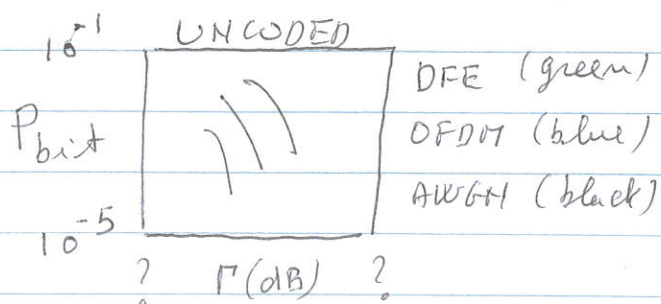 10^-1 UNCODED
DFE (green)
P_bit OFDM (blue)
AWGN (black)
10^-5
? Γ(dB) ?